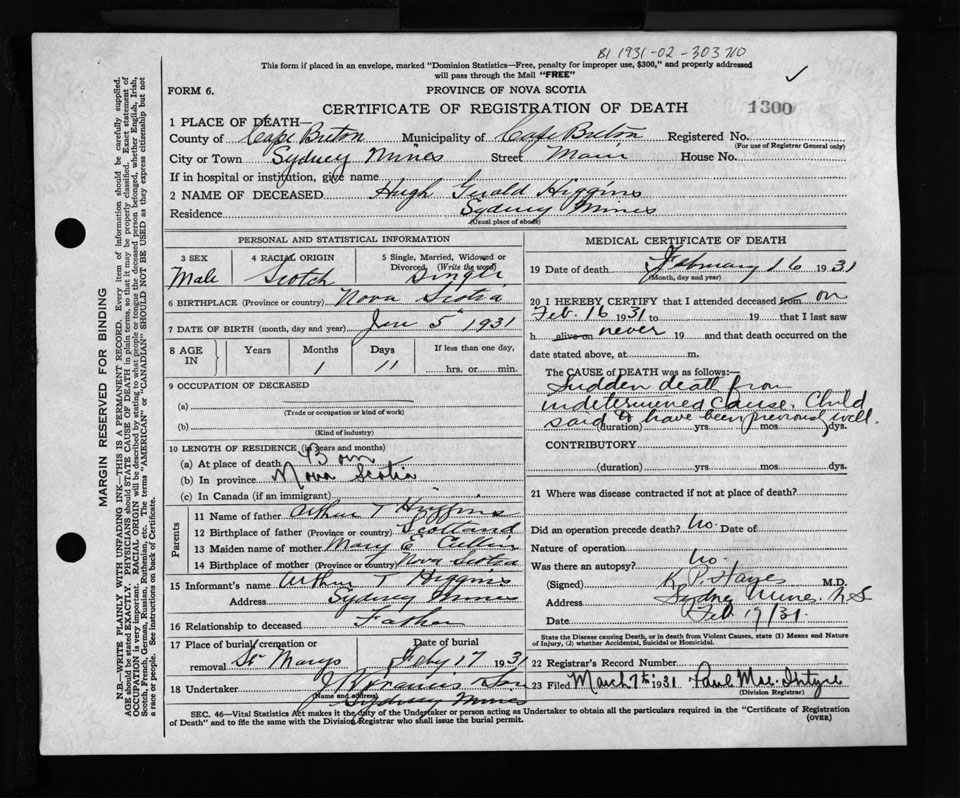 B1 1931-02-303710
This form if placed in an envelope, marked "Dominion Statistics—Free, penalty for improper use, $300," and properly addressed
will pass through the Mail "FREE"
FORM 6.
PROVINCE OF NOVA SCOTIA
CERTIFICATE OF REGISTRATION OF DEATH
1300
1 PLACE OF DEATH—
County of Cape Breton Municipality of Cape Breton Registered No.
(For use of Registrar General only)
City or Town Sydney Mines Street Main House No.
If in hospital or institution, give name
2 NAME OF DECEASED Hugh Gerald Higgins
Residence Sydney Mines
(Usual place of abode)
PERSONAL AND STATISTICAL INFORMATION
3 SEX Male
4 RACIAL ORIGIN Scotch
5 Single, Married, Widowed or Divorced, (Write the word) Single
6 BIRTHPLACE (Province or country) Nova Scotia
7 DATE OF BIRTH (month, day and year) Jan 5th 1931
8 AGE IN Years Months 1 Days 11 If less than one day, hrs. or min.
9 OCCUPATION OF DECEASED
(a)
(Trade or occupation or kind of work)
(b)
(Kind of industry)
10 LENGTH OF RESIDENCE (in years and months)
(a) At place of death Born
(b) In province Nova Scotia
(c) In Canada (if an immigrant)
Parents
11 Name of father Arthur T Higgins
12 Birthplace of father (Province or country) Scotland
13 Maiden name of mother Mary C
14 Birthplace of mother (Province or country) Nova Scotia
15 Informant's name Arthur T Higgins
Address Sydney Mines
16 Relationship to deceased Father
17 Place of burial, cremation or removal St Marys Date of burial Feby 17 1931
18 Undertaker Francis Son
(Name and address) Sydney Mines
MEDICAL CERTIFICATE OF DEATH
19 Date of death February 16 1931
(Month, day and year)
20 I HEREBY CERTIFY that I attended deceased from on
Feb. 16 1931 to 19 that I last saw
h alive on never 19 and that death occurred on the
date stated above, at m.
The CAUSE of DEATH was as follows:—
Sudden death from
undetermined cause. Child
said to have been previously well.
(duration) yrs. mos. dys.
CONTRIBUTORY
(duration) yrs. mos. dys.
21 Where was disease contracted if not at place of death?
Did an operation precede death? No Date of
Nature of operation
Was there an autopsy? No
(Signed) K P. Hayes M.D.
Address Sydney Mines. N.S
Date Feb. 17/31.
State the Disease causing Death, or in death from Violent Causes, state (1) Means and Nature of Injury, (2) whether Accidental, Suicidal or Homicidal.
22 Registrar's Record Number
23 Filed March 7th 1931 Paul Mac Intyre
(Division Registrar)
SEC. 46—Vital Statistics Act makes it the duty of the Undertaker or person acting as Undertaker to obtain all the particulars required in the "Certificate of Registration
of Death" and to file the same with the Division Registrar who shall issue the burial permit.
(OVER)
MARGIN RESERVED FOR BINDING
N.B.—WRITE PLAINLY WITH UNFADING INK—THIS IS A PERMANENT RECORD. Every item of information should be carefully supplied.
AGE should be stated EXACTLY. PHYSICIANS should STATE CAUSE OF DEATH in plain terms, so that it may be properly classified. Exact statement of
OCCUPATION is very important. RACIAL ORIGIN will be described by stating to what people or tongue the deceased person belonged, whether English, Irish,
Scotch, French, German, Russian, Ruthenian, etc. The terms "AMERICAN" or "CANADIAN" SHOULD NOT BE USED as they express citizenship but not
a race or people. See instructions on back of Certificate.